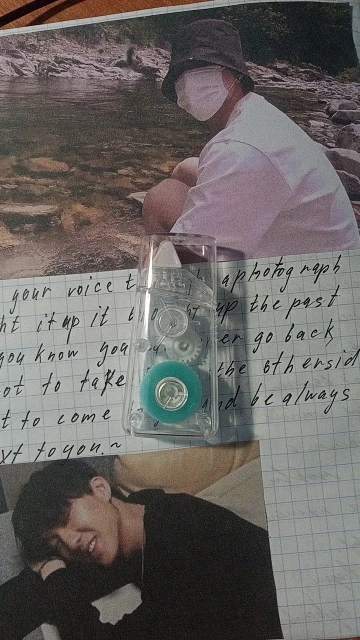 your voice t a photograph
ht it up it up the past
you know you er go back
ot to take the othersid
t to come nd be always
xt to you.~